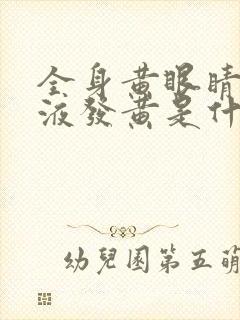 全身黄眼睛
液發黄是什
幼兒園第五萌